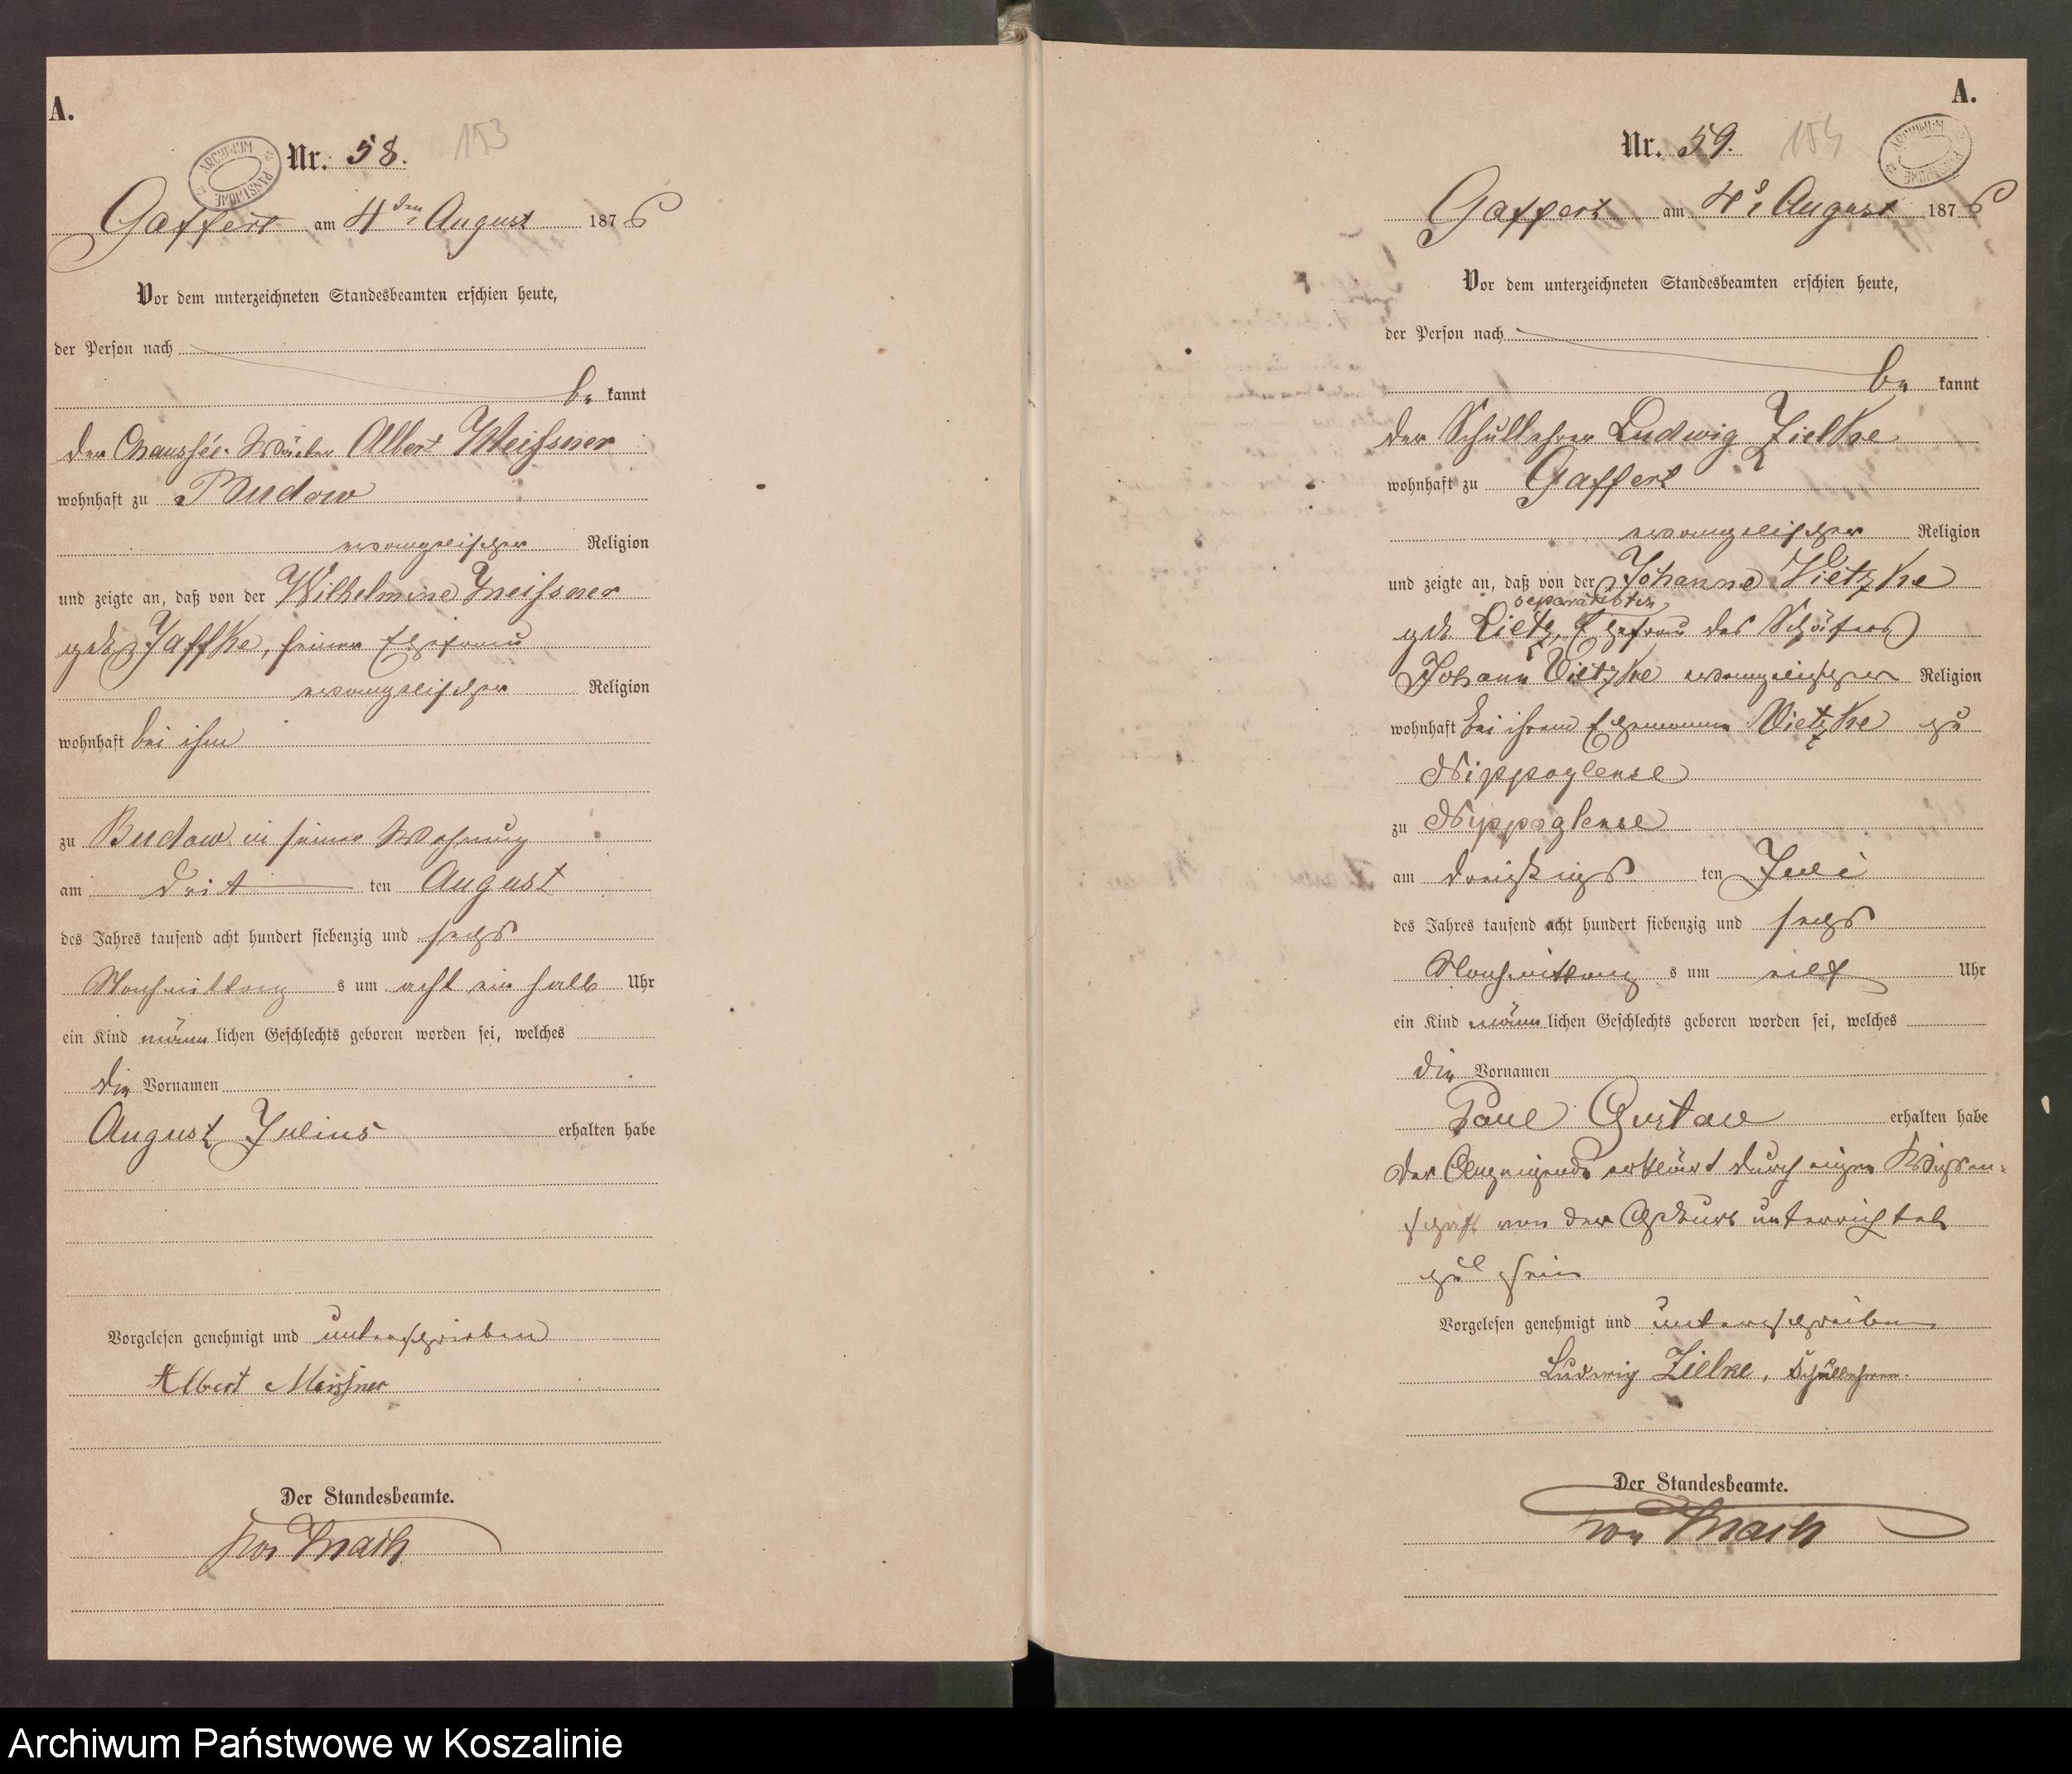 A.
ARCHIWUM PAŃSTWOWE
Nr. 58.
153
Gaffert am 4ten August 1876
Vor dem unterzeichneten Standesbeamten erschien heute,
der Person nach
be kannt
der Chaussée-Wärter Albert Meissner
wohnhaft zu Budow
evangelischer Religion
und zeigte an, daß von der Wilhelmine Meissner
geb. Jaffke, seiner Ehefrau
evangelischer Religion
wohnhaft bei ihm
zu Budow in seiner Wohnung
am drit ten August
des Jahres tausend acht hundert siebenzig und sechs
Nachmittag s um acht ein halb Uhr
ein Kind männ lichen Geschlechts geboren worden sei, welches
die Vornamen
August Julius erhalten habe
Vorgelesen genehmigt und unterschrieben
Albert Meissner
Der Standesbeamte.
von Mach
A.
ARCHIWUM PAŃSTWOWE
Nr. 59.
154
Gaffert am 4t August 1876
Vor dem unterzeichneten Standesbeamten erschien heute,
der Person nach
be kannt
der Schullehrer Ludwig Zielke
wohnhaft zu Gaffert
evangelischer Religion
und zeigte an, daß von der Johanne Vietzke
geb. Lietz, separirten Ehefrau des Schäfers
Johann Vietzke evangelischer Religion
wohnhaft bei ihrem Ehemanne Vietzke zu
Nippoglense
zu Nippoglense
am dreißigs ten Juli
des Jahres tausend acht hundert siebenzig und sechs
Nachmittag s um eilf Uhr
ein Kind männ lichen Geschlechts geboren worden sei, welches
die Vornamen
Paul Gustav erhalten habe
der Anzeigende erklärt durch eigene Wissen-
schaft von der Geburt unterrichtet
zu sein
Vorgelesen genehmigt und unterschrieben
Ludwig Zielke, Schullehrer.
Der Standesbeamte.
von Mach
Archiwum Państwowe w Koszalinie